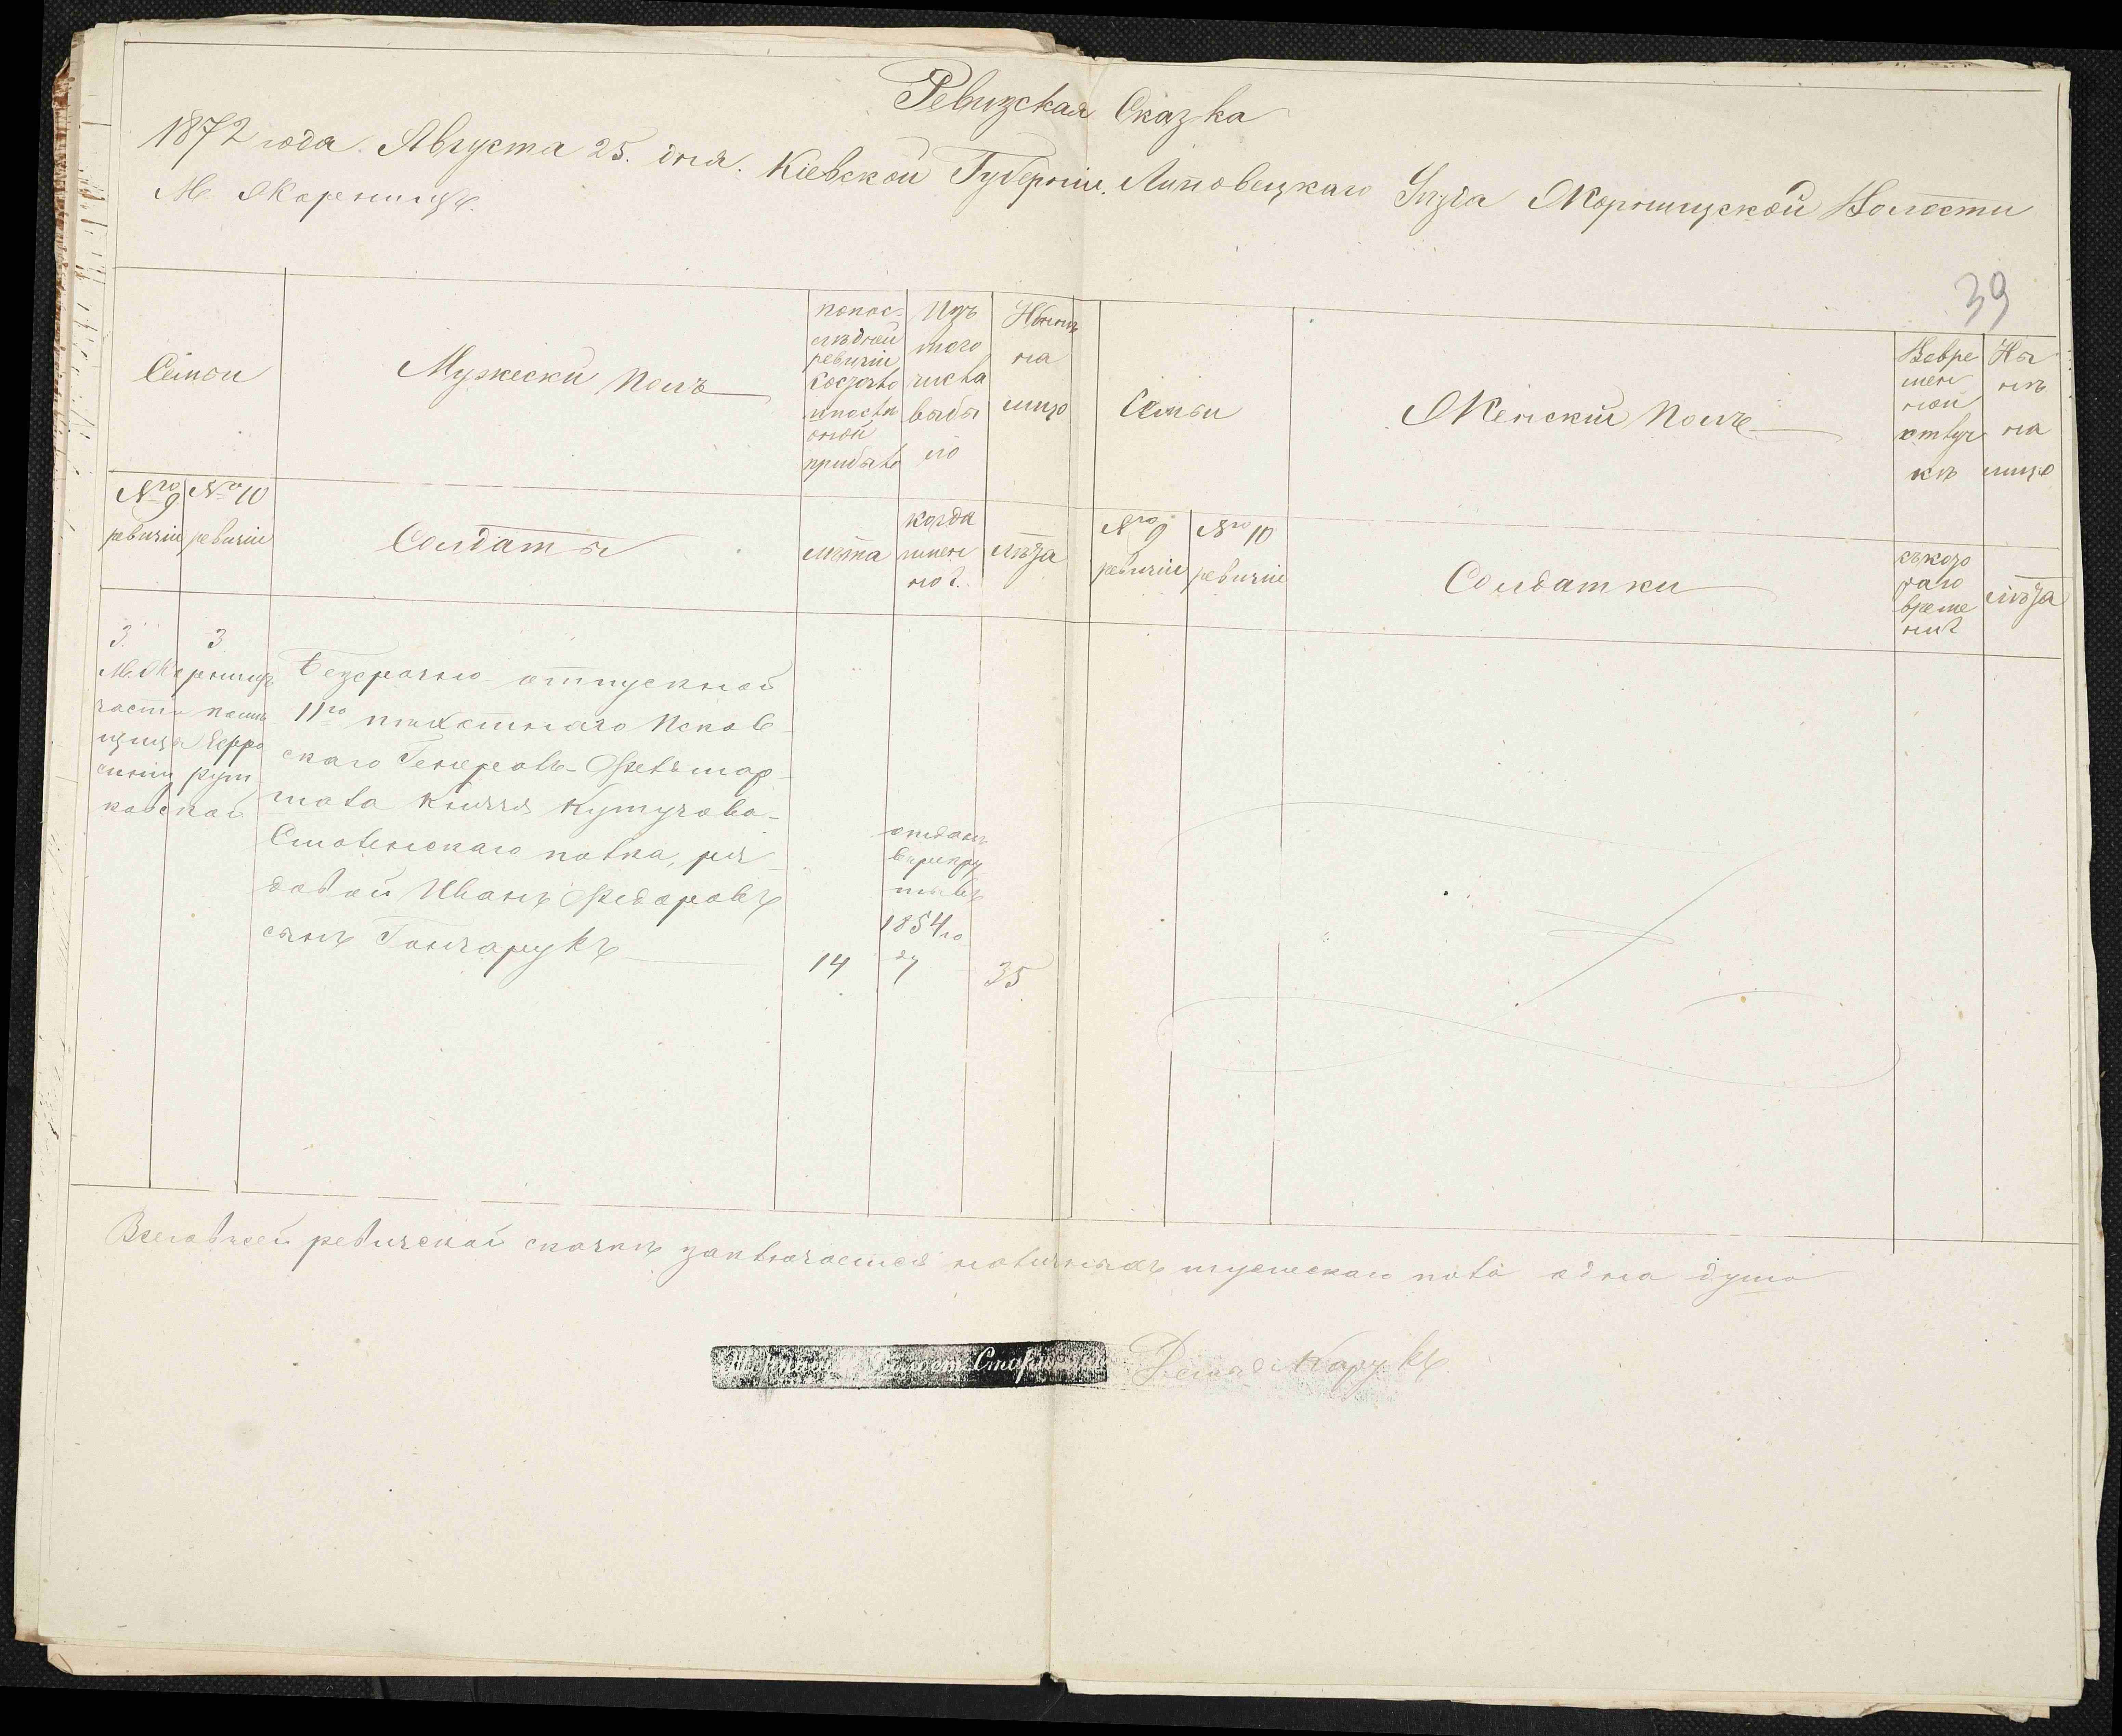 Ревизская Сказка
1872 года Августа 25. дня. Кіевской Губерніи, Липовецкаго Уезда Жорнищской Волости
М. Жорнище.
39
Семьи
Мужески Полъ
попос-
ледней
ревизіи
состояло
и после
оной
прибыло
Изъ
того
числа
выбы
ло
Ныне
на
лицо
Семьи
Женскій Полъ
Вовре
мен
ной
отлуч
ке
Ны
не
на
лицо
№ 9
ревизіи
№ 10
ревизіи
Солдаты
лета
когда
имен
но?
лета
№ 9
ревизіи
№ 10
ревизіи
Солдатки
съкого
раго
време
ни?
лета
3. 3
М. Жорнище
части поме
щицы Ефро
синіи Рут
ковской
Безсрочно отпускной
11го пехотнаго Псков-
скаго Генералъ-Фельдмар-
шала Князя Кутузова-
Смоленскаго полка, ря-
довой Иванъ Федоровъ
сынъ Гончарукъ
14
отданъ
врекру
ты въ
1854 го
ду
35
Всего в сей ревизской сказке заключается наличныхъ мужескаго пола одна душа
Волост. Старшина